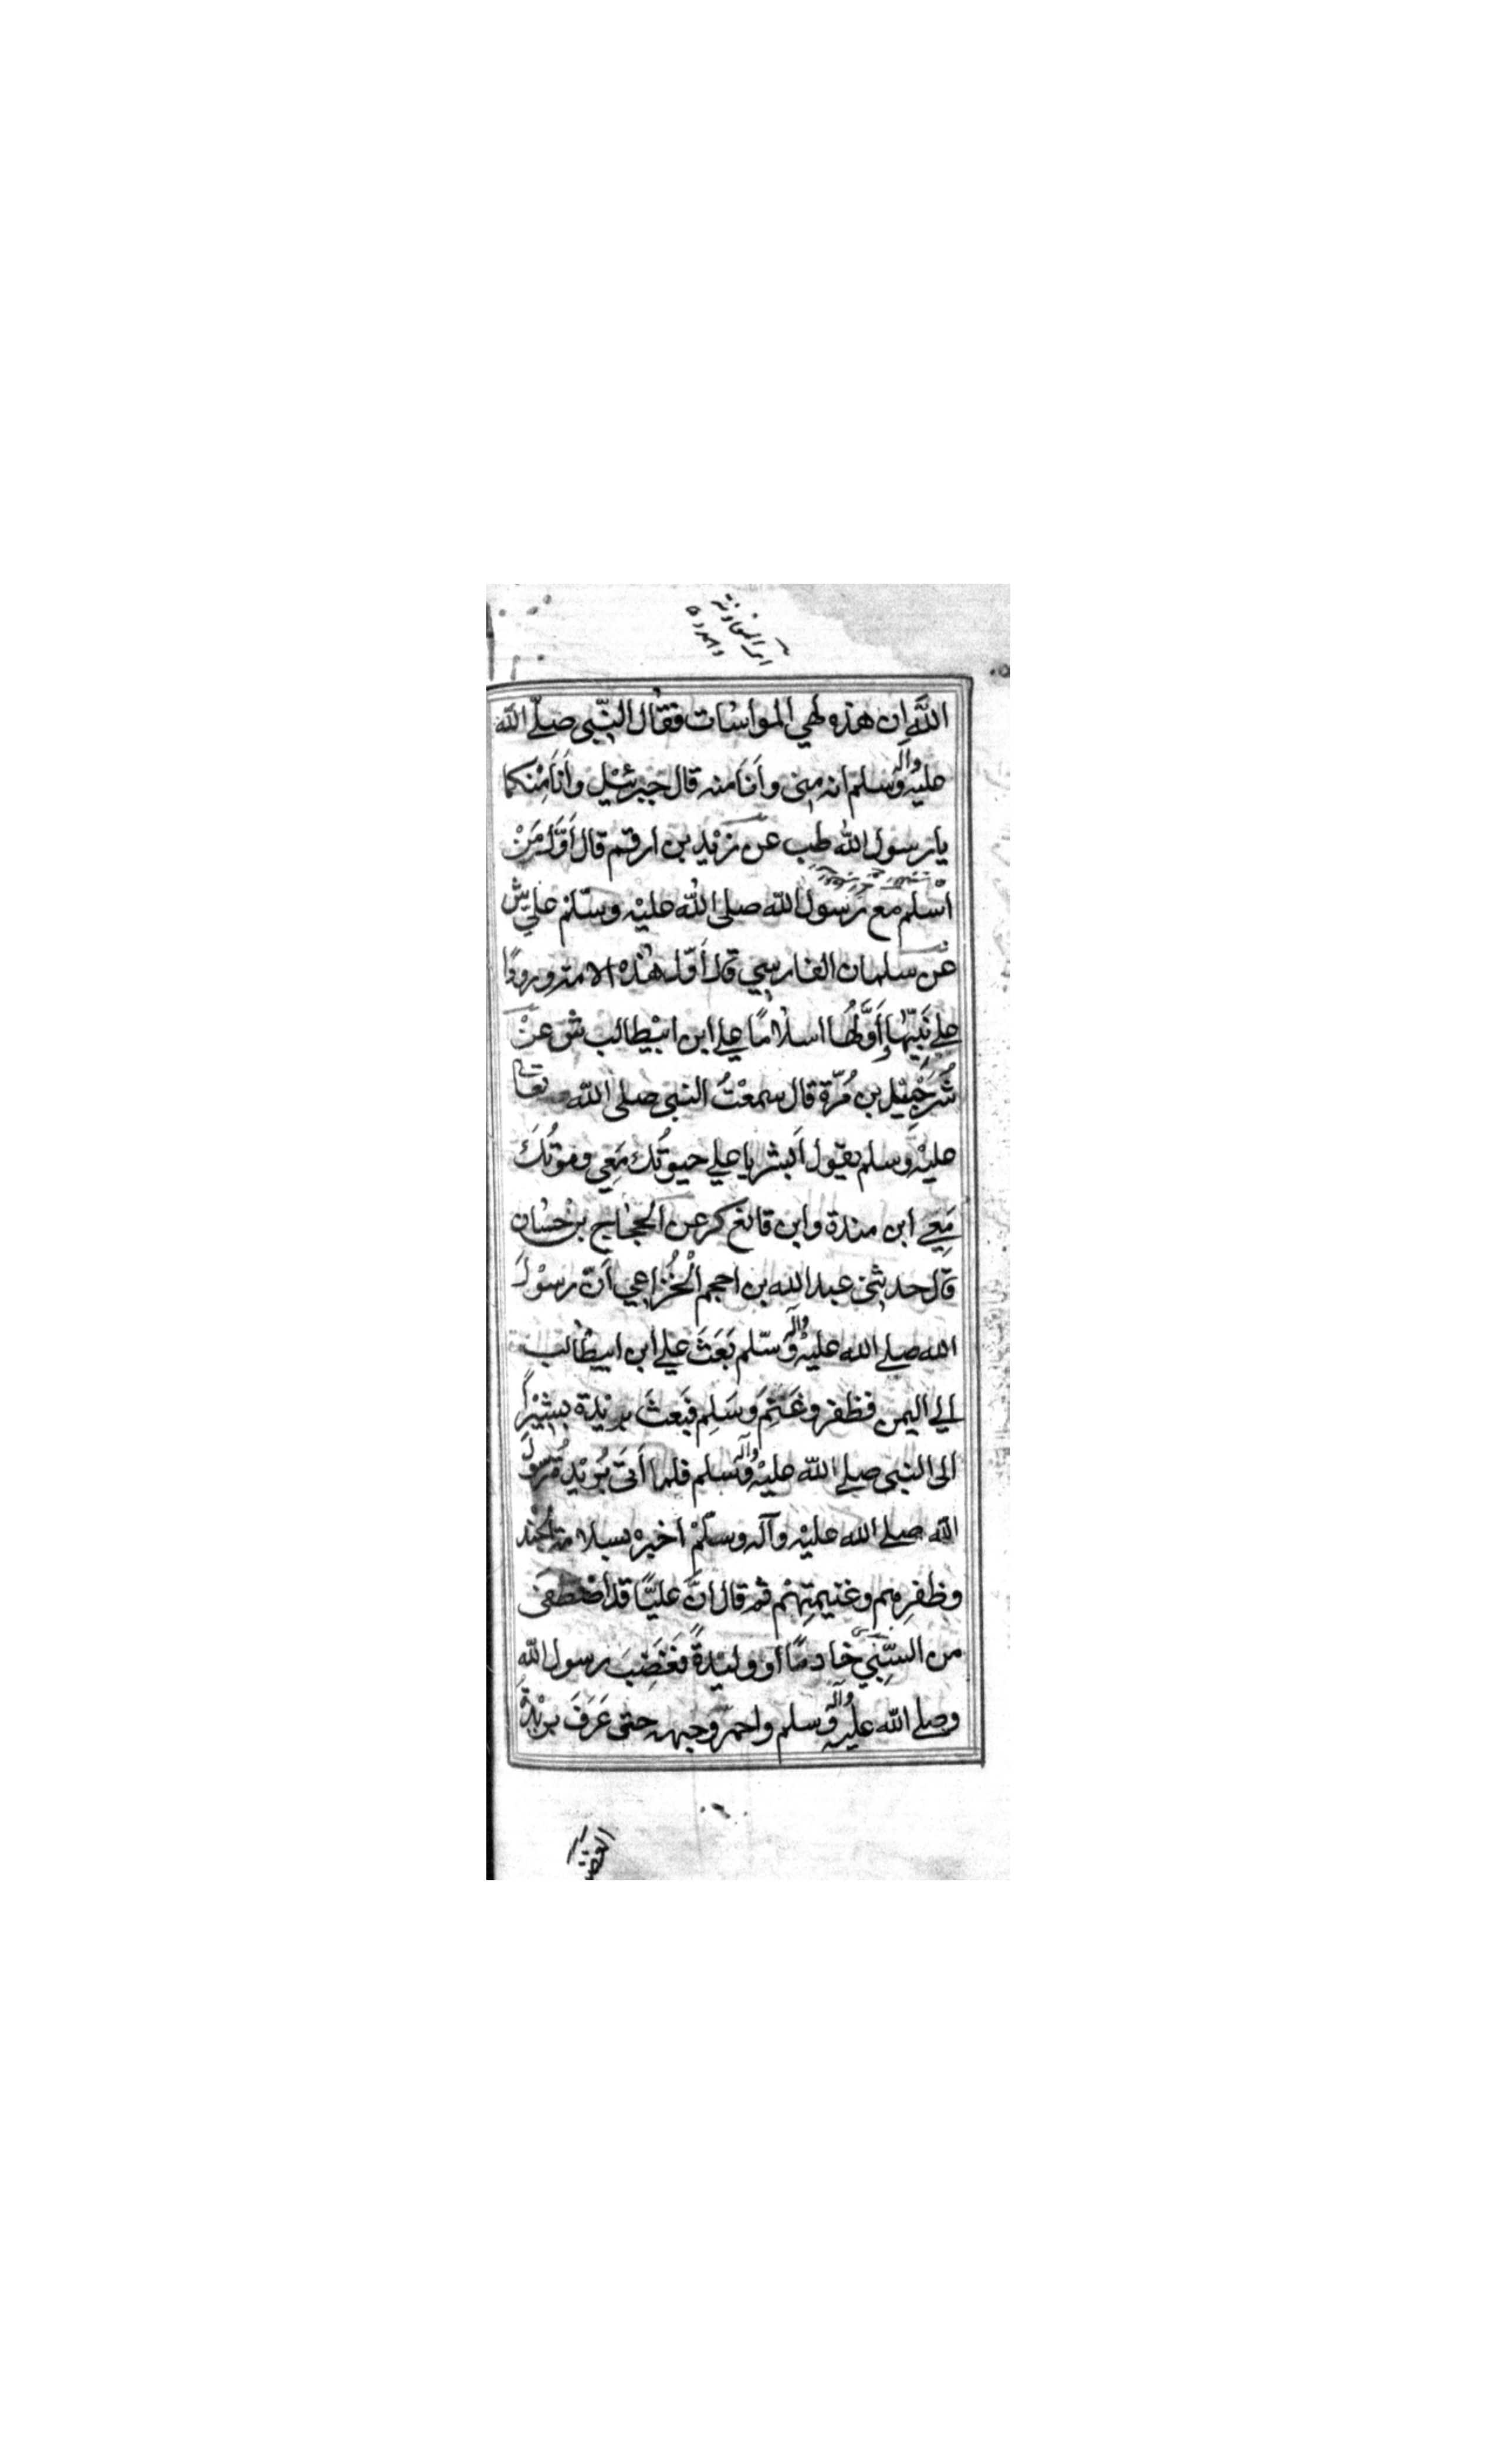 اللّٰهَ اِن هذه لهي المواسات فقال النّبى صلّے اللّه
عليه وآله وسلم انه منى وأَنَا منه قال جبرئيل وأَنَا مِنْكما
يا رسول اللّٰه طب عن زَيْد بن ارقم قال أوَّل مَنْ
أسْلم مع رَسُول اللّه صلى اللّٰه عليْه وسّلم علي ش
عن سلمان الفارسي قال أوّل هٰذه الامة ورودًا
علے نَبيِّها أَوَّلُهَا اسلامًا علے ابن ابيْطالب ش عنْ
شُرَحْبيل بن مُرّة قال سمعْتُ النبى صلى اللّه تعالٰى
عليْه وسلم يقول اَبشر يا علے حيوتُك مَعِي وموتُكَ
مَعِے ابن مندة وابن قانع كر عن الحجّاج بن حسّان
قال حدثنى عبد اللّه بن احجم الْخُزاعي أنّ رسوْلَ
اللّه صلے اللّه عليْه وآله وسّلم بَعَثَ علے ابن ابيطالب
الے اليمن فظفر وغَنِمَ وَسَلِم فبَعثَ بريْدة بشيْرًا
الى النبى صلے اللّه عليْه وآله وسلم فلما أتىَ بُريْدةُ رسولَ
اللّه صلے اللّه عليْه وآله وسلّمْ اخبره بسلامة الجُند
وظفرِهم وغنيمتِهِمْ ثمّ قال انَّ عليًّا قد اصْطفى
من السّبْي خادمًا او وليْدةً فغَضِبَ رسول اللّه
وصلے اللّه عليْه وآله وسلم واحمرّ وجهه حتى عَرَفَ بريْدةُ
٦